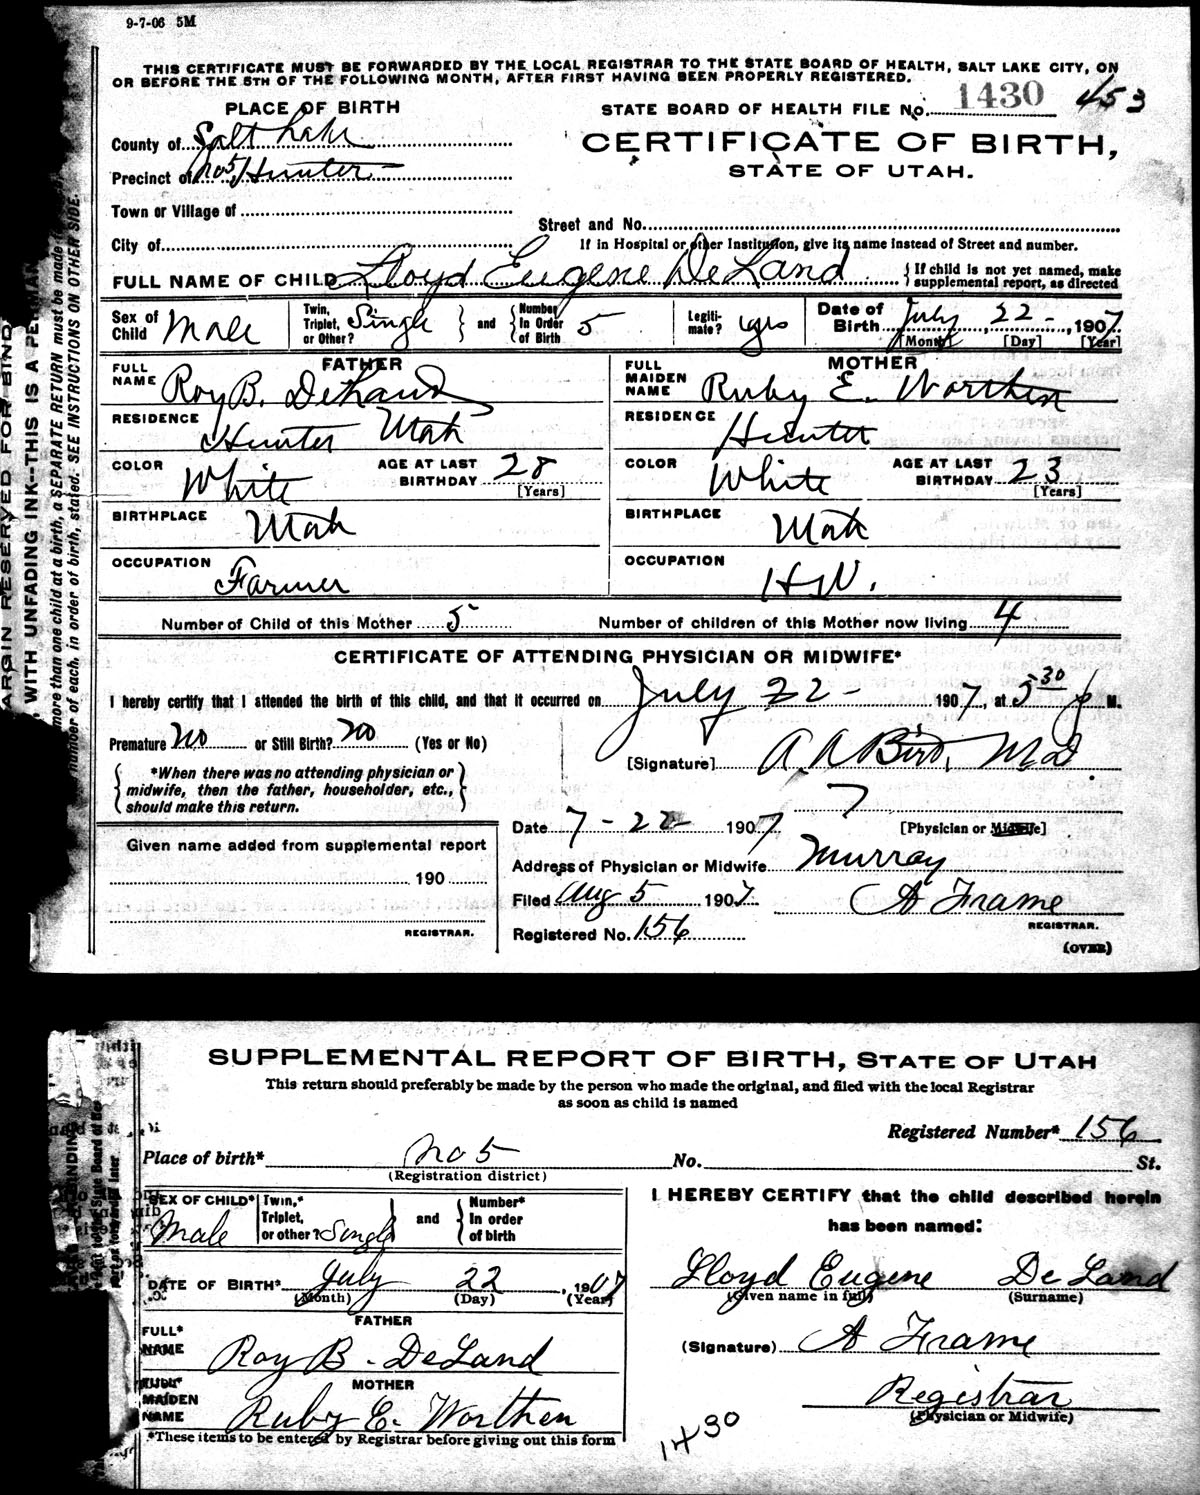 9-7-06 5M
THIS CERTIFICATE MUST BE FORWARDED BY THE LOCAL REGISTRAR TO THE STATE BOARD OF HEALTH, SALT LAKE CITY, ON
OR BEFORE THE 5TH OF THE FOLLOWING MONTH, AFTER FIRST HAVING BEEN PROPERLY REGISTERED.
PLACE OF BIRTH
STATE BOARD OF HEALTH FILE No. 1430 453
County of Salt Lake
CERTIFICATE OF BIRTH,
Precinct of No 5 Hunter
STATE OF UTAH.
Town or Village of
Street and No.
City of
If in Hospital or other Institution, give its name instead of Street and number.
FULL NAME OF CHILD Lloyd Eugene DeLand { If child is not yet named, make supplemental report, as directed
Sex of Child Male Twin, Triplet, or other? Single } and { Number In Order of Birth 5 Legiti-mate? yes Date of Birth July, 22-, 1907
[Month] [Day] [Year]
FATHER
FULL NAME Roy B. DeLand
RESIDENCE Hunter Utah
COLOR White AGE AT LAST BIRTHDAY 28 [Years]
BIRTHPLACE Utah
OCCUPATION Farmer
MOTHER
FULL MAIDEN NAME Ruby E. Worthen
RESIDENCE Hunter
COLOR White AGE AT LAST BIRTHDAY 23 [Years]
BIRTHPLACE Utah
OCCUPATION H.W.
Number of Child of this Mother 5 Number of children of this Mother now living 4
CERTIFICATE OF ATTENDING PHYSICIAN OR MIDWIFE*
I hereby certify that I attended the birth of this child, and that it occurred on July 22- 1907, at 5 30 p M.
Premature No or Still Birth? No (Yes or No)
[Signature] A. A. Bird, M.D.
*When there was no attending physician or
midwife, then the father, householder, etc.,
should make this return.
7
Date 7-22- 1907 [Physician or Midwife]
Given name added from supplemental report
Address of Physician or Midwife Murray
190
Filed Aug 5 1907 A Frame
REGISTRAR. REGISTRAR.
Registered No. 156
(OVER)
MARGIN RESERVED FOR BIND
WITH UNFADING INK--THIS IS A PERMAN
more than one child at a birth, a SEPARATE RETURN must be made
number of each, in order of birth, stated. SEE INSTRUCTIONS ON OTHER SIDE.
SUPPLEMENTAL REPORT OF BIRTH, STATE OF UTAH
This return should preferably be made by the person who made the original, and filed with the local Registrar
as soon as child is named
Registered Number* 156
Place of birth* No 5 No. St.
(Registration district)
SEX OF CHILD* Male Twin,* Triplet, or other? Single } and { Number* In order of birth
DATE OF BIRTH* July 22, 1907
(Month) (Day) (Year)
FATHER
FULL* NAME Roy B. DeLand
MOTHER
FULL* MAIDEN NAME Ruby E. Worthen
*These items to be entered by Registrar before giving out this form
I HEREBY CERTIFY that the child described herein
has been named:
Lloyd Eugene De Land
(Given name in full) (Surname)
(Signature) A Frame
Registrar
(Physician or Midwife)
1430